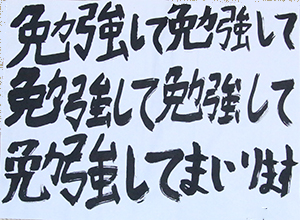 勉強して勉強して
勉強して勉強して
勉強してまいります